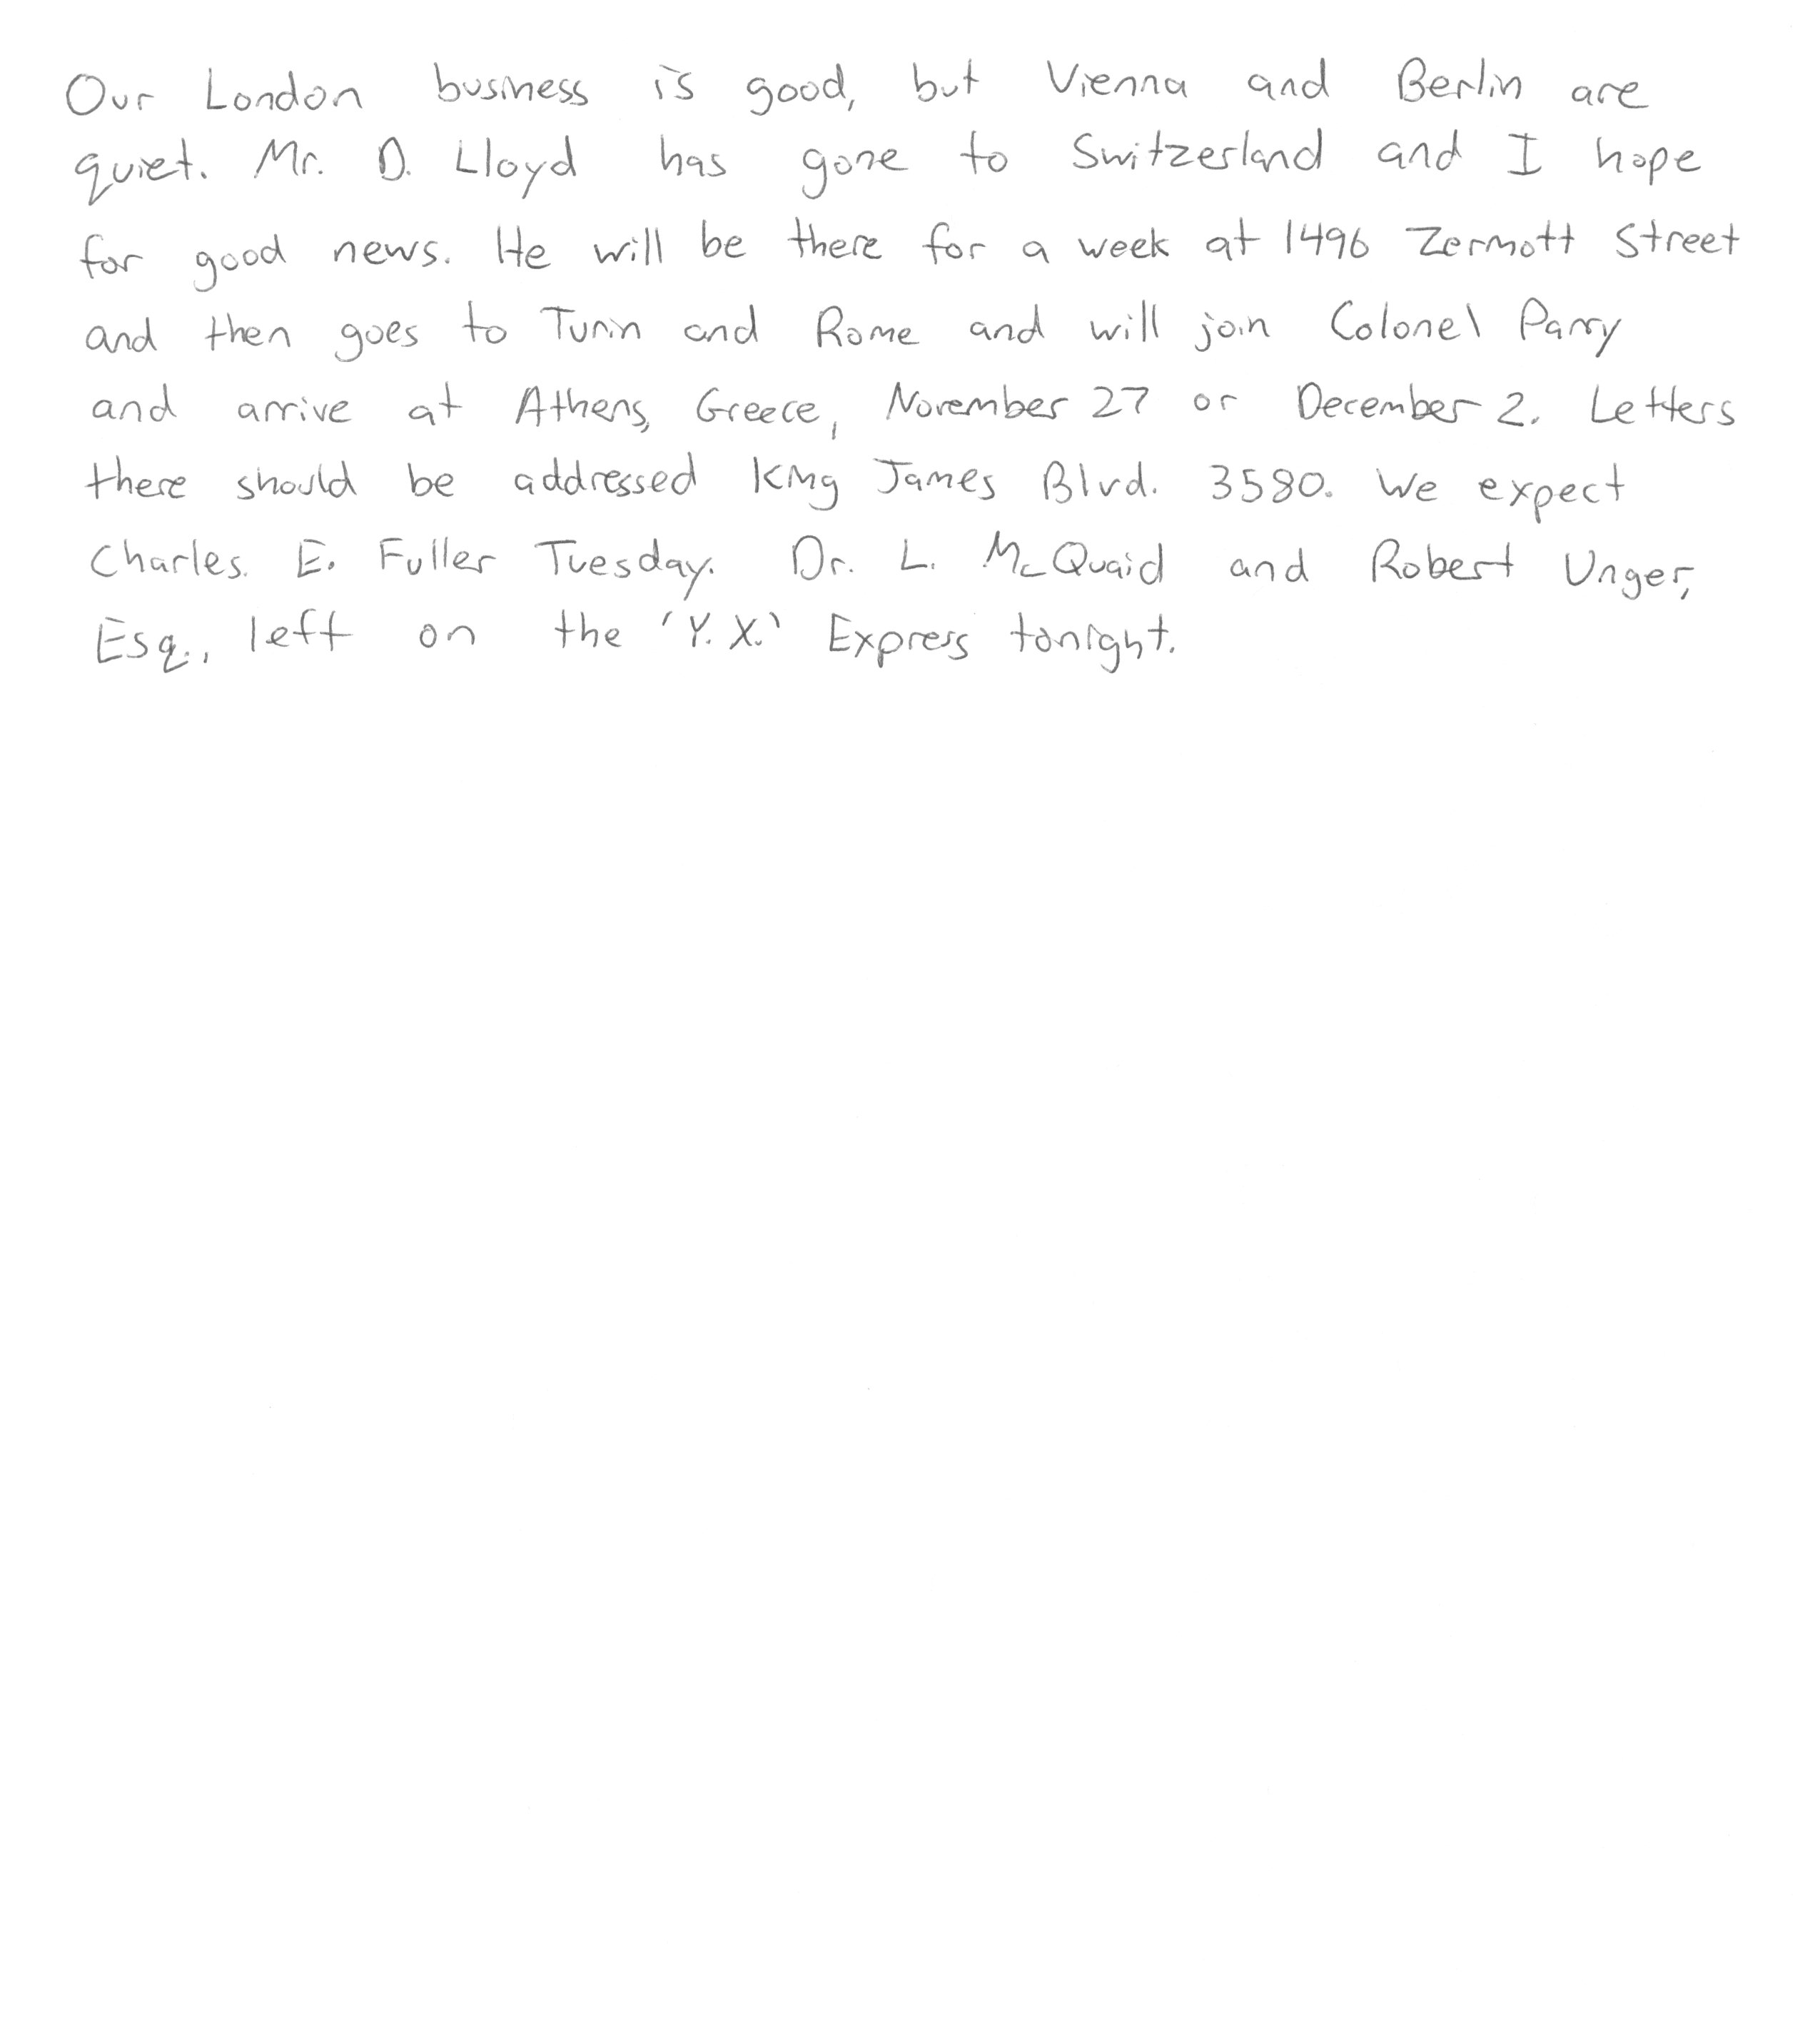 Our London business is good, but Vienna and Berlin are
quiet. Mr. D. Lloyd has gone to Switzerland and I hope
for good news. He will be there for a week at 1496 Zermott Street
and then goes to Turin and Rome and will join Colonel Parry
and arrive at Athens, Greece, November 27 or December 2. Letters
there should be addressed King James Blvd. 3580. We expect
Charles. E. Fuller Tuesday. Dr. L. McQuaid and Robert Unger,
Esq., left on the 'Y.X.' Express tonight.